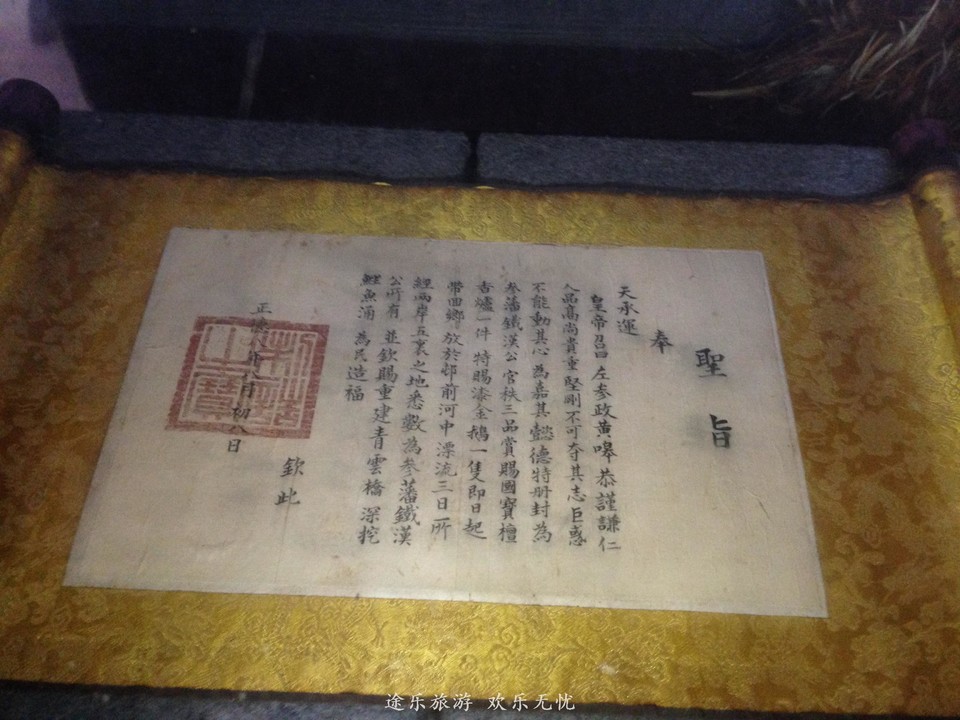 聖旨
奉
天承運
皇帝召曰左参政黄嗥恭謹謙仁
人品高尚貴重堅剛不可夺其志巨惑
不能動其心為嘉其懿德特册封為
参藩鐵漢公官秩三品賞賜國寶檀
香爐一件特賜漆金鵝一隻即日起
帶回鄉放於邨前河中漂流三日所
經兩岸五裏之地悉數為参藩鐵漢
公所有並欽賜重建青雲橋深挖
鯉魚涌為民造福
欽此
正德八年八月初八日
途乐旅游 欢乐无忧